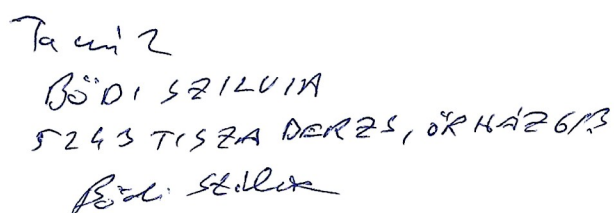 Tanú 2
BÖDI SZILVIA
5243 TISZADERZS, ŐRHÁZ 6/3
Bödi Szilvia